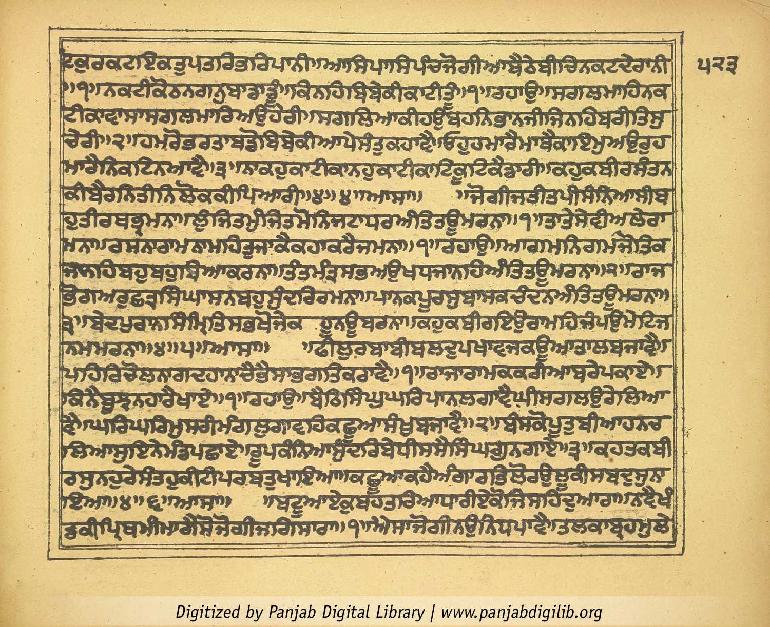 ਟਕੁਰਕਟਾਇਕਤੁਪਤਰਿਭਰਿਪਾਨੀ॥ਆਸਿਪਾਸਿਪੰਚਜੋਗੀਆਬੈਠੇਬੀਚਿਨਕਟਦੇਰਾਨੀ
॥੧॥ਨਕਟੀਕੋਠਨਗਨੁਬਾਡਾਡੂੰ॥ਕਿਨਹਿਬਿਬੇਕੀਕਾਟੀਤੂੰ॥੧॥ਰਹਾਉ॥ਸਗਲਮਾਹਿਨਕ
ਟੀਕਾਵਾਸਾਸਗਲਮਾਰਿਅਉਹੇਰੀ॥ਸਗਲਿਆਕੀਹਉਬਹਨਿਭਾਨਜੀਜਿਨਹਿਬਰੀਤਿਸੁ
ਚੇਰੀ॥੨॥ਹਮਰੋਭਰਤਾਬਡੋਬਿਬੇਕੀਆਪੇਸੰਤੁਕਹਾਵੈ॥ਓਹੁਹਮਾਰੈਮਾਥੈਕਾਇਮੁਅਉਰੁਹ
ਮਾਰੈਨਿਕਟਿਨਆਵੈ॥੩॥ਨਾਕਹੁਕਾਟੀਕਾਨਹੁਕਾਟੀਕਾਟਿਕੂਟਿਕੈਡਾਰੀ॥ਕਹੁਕਬੀਰਸੰਤਨ
ਕੀਬੈਰਨਿਤੀਨਿਲੋਕਕੀਪਿਆਰੀ॥੪॥੪॥ਆਸਾ॥ ॥ਜੋਗੀਜਤੀਤਪੀਸੰਨਿਆਸੀਬ
ਹੁਤੀਰਥਭ੍ਰਮਨਾ॥ਲੁੰਜਿਤਮੁੰਜਿਤਮੋਨਿਜਟਾਧਰਅੰਤਿਤਊਮਰਨਾ॥੧॥ਤਾਤੇਸੇਵੀਅਲੇਰਾ
ਮਨਾ॥ਰਸਨਾਰਾਮਨਾਮਹਿਤੁਜਾਕੈਕਹਾਕਰੈਜਮਨਾ॥੧॥ਰਹਾਉ॥ਆਗਮਨਿਰਗਮਜੋਤਿਕ
ਜਾਨਹਿਬਹੁਬਹੁਬਿਆਕਰਨਾ॥ਤੰਤਮੰਤ੍ਰਸਭਅਉਖਧਜਾਨਹਿਅੰਤਿਤਊਮਰਨਾ॥੨॥ਰਾਜ
ਭੋਗਅਰੁਛਤ੍ਰਸਿੰਘਾਸਨਬਹੁਸੁੰਦਰਿਰਮਨਾ॥ਪਾਨਕਪੂਰਸੁਬਾਸਕਚੰਦਨਅੰਤਿਤਊਮਰਨਾ॥
੩॥ਬੇਦਪੁਰਾਨਸਿੰਮ੍ਰਿਤਿਸਭਖੋਜੇਕ ਹੂਨਊਬਰਨਾ॥ਕਹੁਕਬੀਰਇਉਰਾਮਹਿਜੰਪਉਮੇਟਿਜ
ਨਮਮਰਨਾ॥੪॥੫॥ਆਸਾ॥ ॥ਫੀਲੁਰਬਾਬੀਬਲਦੁਪਖਾਵਜਕਊਆਤਾਲਬਜਾਵੈ॥
ਪਹਿਰਿਚੋਲਨਾਗਦਹਾਨਾਚੈਭੈਸਾਭਗਤਿਕਰਾਵੈ॥੧॥ਰਾਜਾਰਾਮਕਕਰੀਆਬਰੇਪਕਾਏ॥
ਕਿਨੈਬੂਝਨਹਾਰੇਖਾਏ॥੧॥ਰਹਾਉ॥ਬੈਠਿਸਿੰਘੁਘਰਿਪਾਨਲਗਾਵੈਘੀਸਗਲਉਰੇਲਿਆ
ਵੈ॥ਘਰਿਘਰਿਮੁਸਰੀਮੰਗਲੁਗਾਵਹਿਕਛੂਆਸੰਖੁਬਜਾਵੈ॥੨॥ਬੰਸਕੋਪੂਤੁਬੀਆਹਨਚ
ਲਿਆਸੁਇਨੇਮੰਡਪਛਾਏ॥ਰੂਪਕੰਨਿਆਸੁੰਦਰਿਬੇਧੀਸਸੈਸਿੰਘਗੁਨਗਾਏ॥੩॥ਕਹਤਕਬੀ
ਰਸੁਨਹੁਰੇਸੰਤਹੁਕੀਟੀਪਰਬਤੁਖਾਇਆ॥ਕਛੂਆਕਹੈਅੰਗਾਰਭਿਲੋਰਉਲੂਕੀਸਬਦੁਸੁਨਾ
ਇਆ॥੪॥੬॥ਆਸਾ॥ ॥ਬਟੂਆਏਕੁਬਹਤਰਿਆਧਾਰੀਏਕੋਜਿਸਹਿਦੁਆਰਾ॥ਨਵੈਖੰ
ਡਕੀਪ੍ਰਿਥਮੀਮਾਗੈਸੋਜੋਗੀਜਗਿਸਾਰਾ॥੧॥ਐਸਾਜੋਗੀਨਉਨਿਧਿਪਾਵੈ॥ਤਲਕਾਬ੍ਰਹਮੁਲੇ
੫੨੩
Digitized by Panjab Digital Library | www.panjabdigilib.org